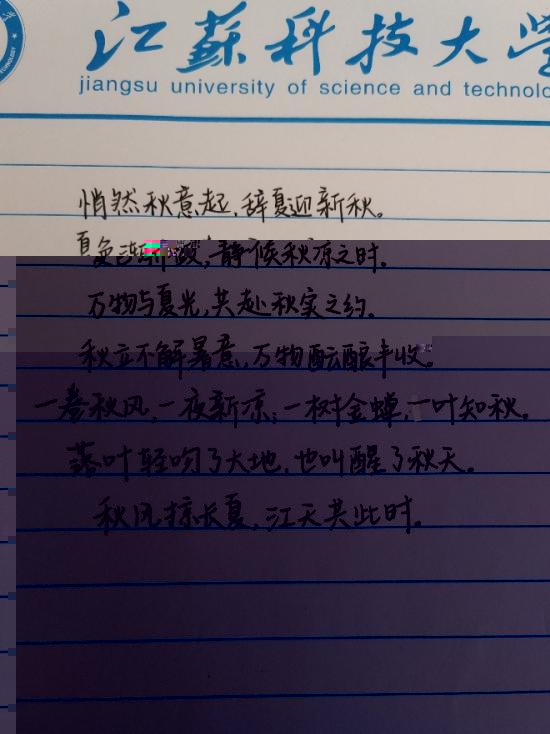 江蘇科技大学
jiangsu university of science and technolo
悄然秋意起,辞夏迎新秋。
夏兔渐渐,静候秋凉之时。
万物与夏光,共赴秋实之约。
秋立不解暑意,万物酝酿丰收。
一卷秋风,一夜新凉;一树金蝉,一叶知秋。
落叶轻吻了大地,也叫醒了秋天。
秋风掠长夏,江天共此时。